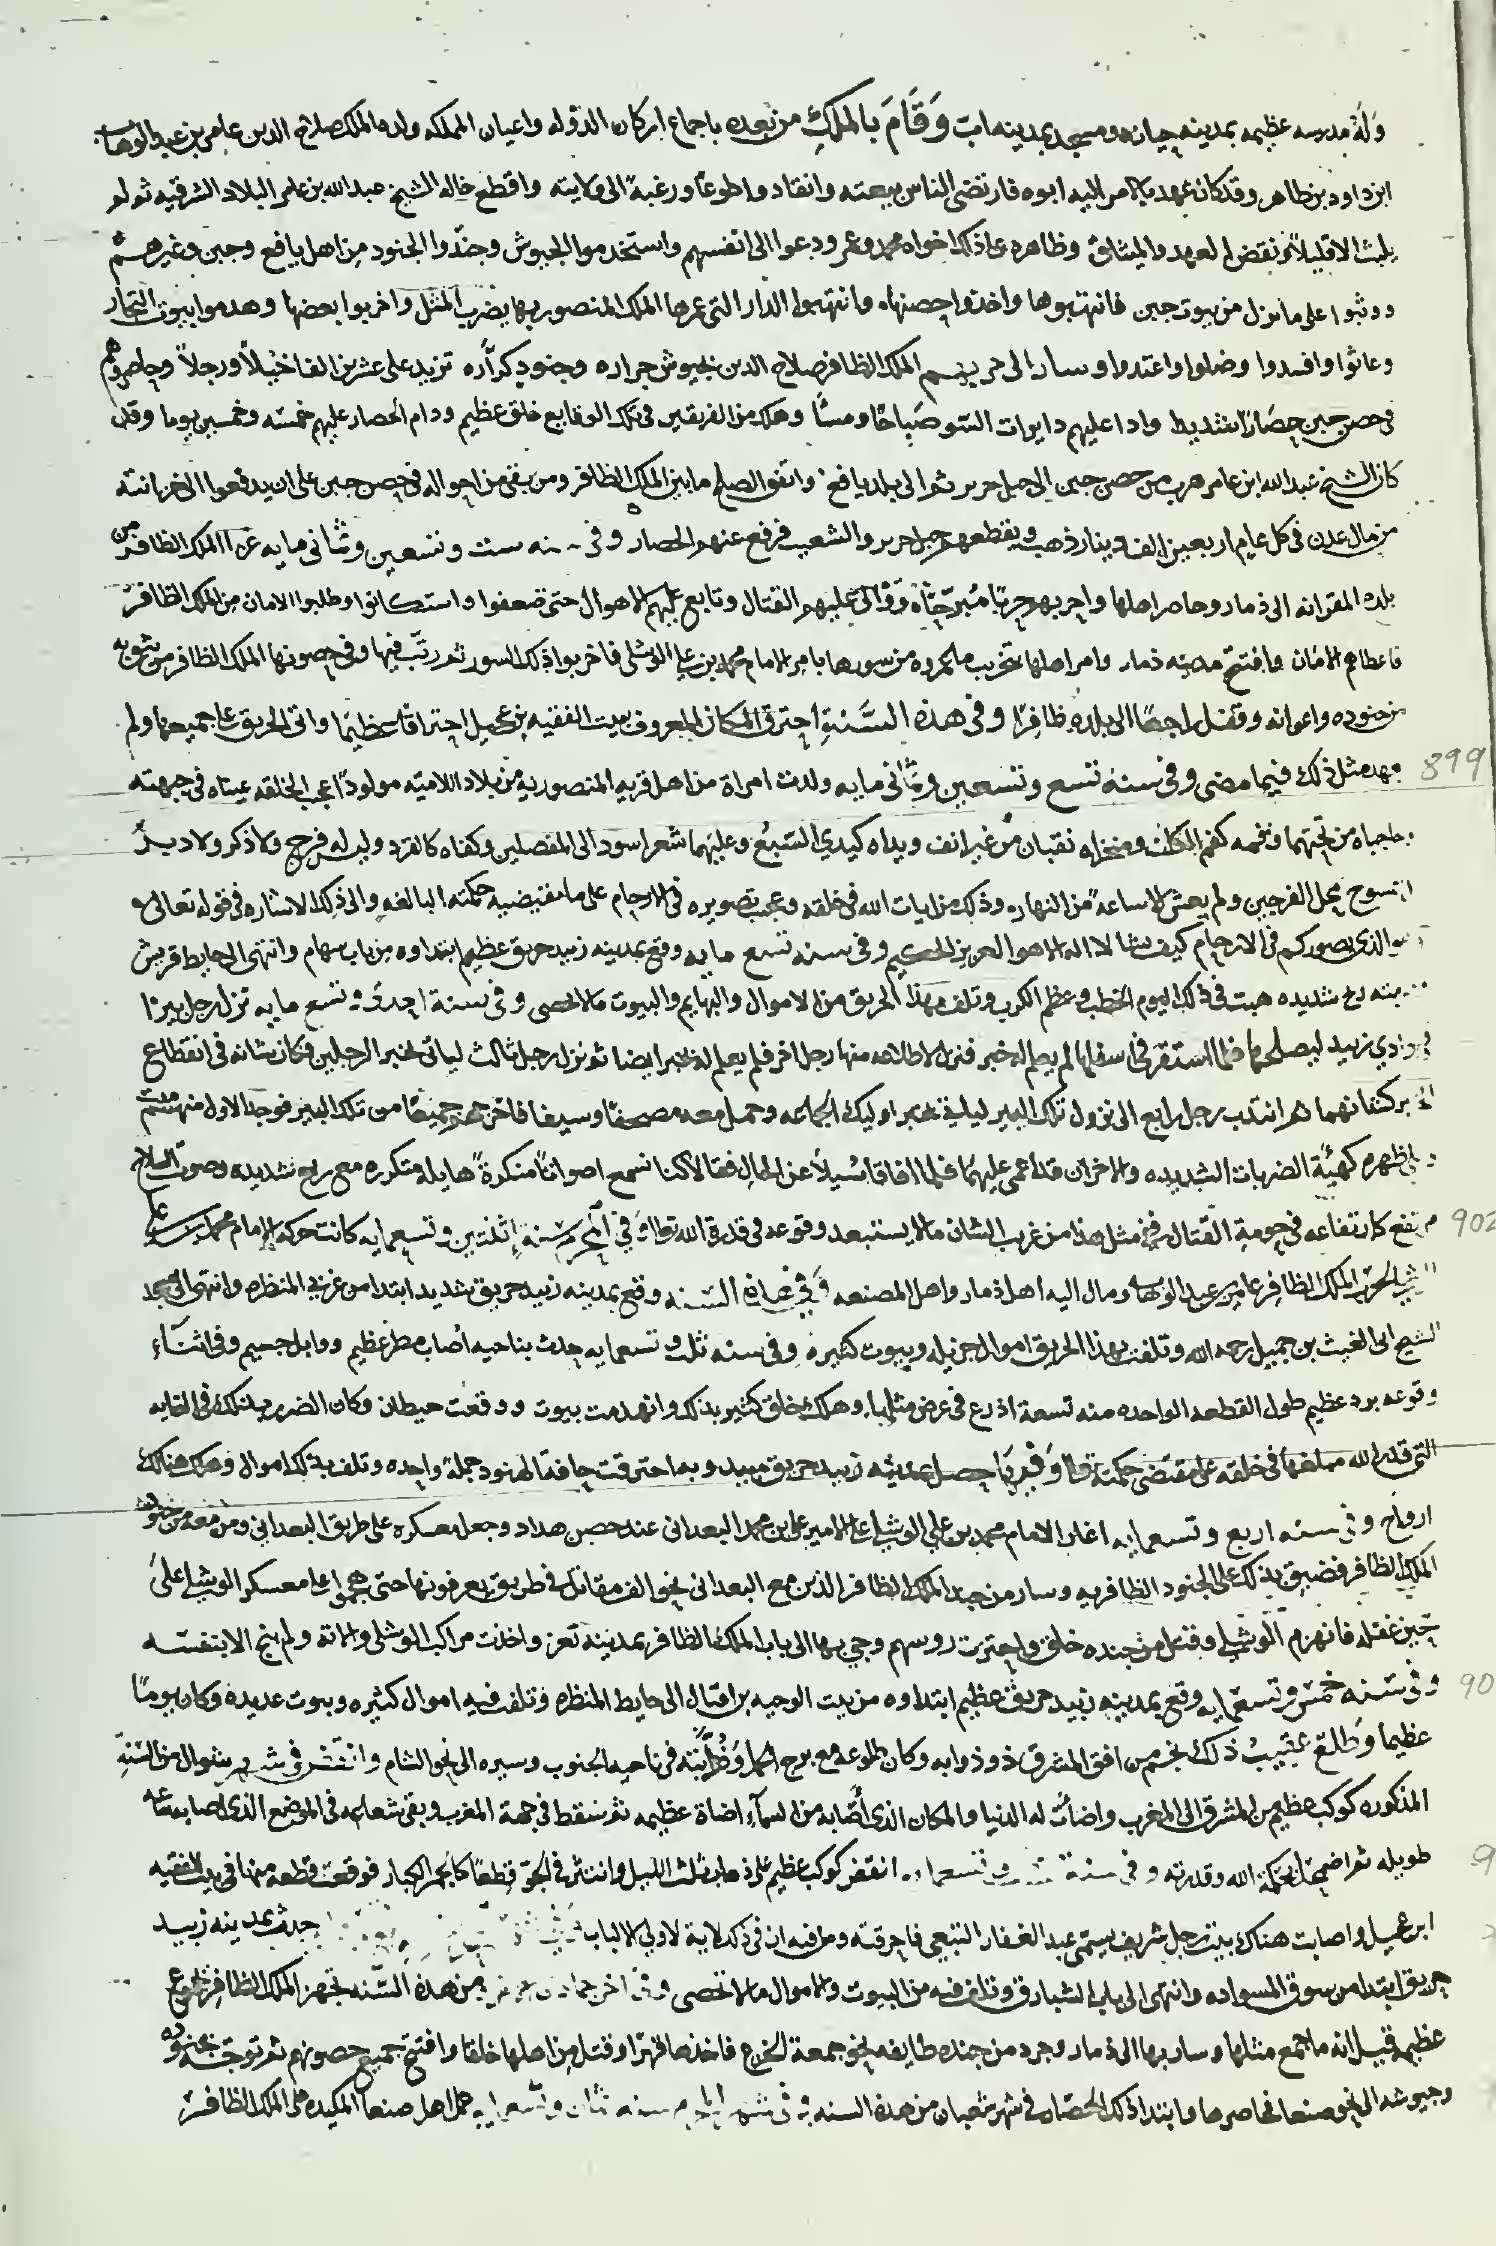 وله مدرسه عظيمه بمدينه جبانه ومسجد بمدينه اب وقام بالملك من بعده باجماع اركان الدوله واعيان المملكه ولده الملك صلاح الدين عامر بن عبد الوهاب
ابن داود بن طاهر وقد كان عهد بالامر اليه ابوه فارتضى الناس ببيعته وانقادوا طوعا ورغبة الى ولايته واقطع خاله الشيخ عبد الله بن عامر البلاد الشرقيه ثم لم
يلبث الا قليلا ثم نقض العهد والميثاق وظاهره على ذلك اخواه محمد وعمر ودعوا الى انفسهم واستخدموا الجيوش وجندوا الجنود من اهل يافع وجبن وغيرهم
ووثبوا على ما نزل من بيوت جبن فانتهبوها واخذوا حصنها وانتهبوا الدار التي عمرها الملك المنصور بها يضرب المثل واخربوا بعضها وهدموا بيوت التجار
وعاثوا وافسدوا وضلوا واعتدوا وسار الى حربهم الملك الظافر صلاح الدين بجيوش جراره وجنود كراره تزيد على عشرين الفا خيلا ورجلا وحاصروهم
في حصن جبن حصارا شديدا وادار عليهم دايرات السو صباحا ومسا وهلك من الفريقين في تلك الوقايع خلق عظيم ودام الحصار عليهم خمسة وخمسين يوما وقد
كان الشيخ عبد الله ابن عامر هرب من حصن جبن الى جبل حرير ثم الى بلد يافع واتفق الصلح ما بين الملك الظافر ومن بقي من اخواله في حصن جبن على ان يدفعوا الى خزانته
من مال عدن في كل عام اربعين الف دينار ذهب ويقطعهم جبل حرير والشعيب فرفع عنهم الحصار وفي سنه ست وتسعين وثماني مايه غزا الملك الظافر من
بلده المقرانه الى ذمار وحاصر اهلها واحربهم حربا مبرحا ووالى عليهم القتال وتابع عليهم الاهوال حتى ضعفوا واستكانوا وطلبوا الامان من الملك الظافر
فاعطاهم الامان وافتتح مدينه ذمار وامر اهلها بتخريب ما عمروه من سورها بامر الامام محمد بن علي الوشلي فاخربوا ذلك السور ثم رتب فيها وفي حصونها الملك الظافر من يثق به
من جنوده واعوانه وقفل راجعا الى بلده ظافرا وفي هذه السنة احترق المكان المعروف ببيت الفقيه بن عجيل احتراقا عظيما واتى الحريق على جميعها ولم
يعهد مثل ذلك فيما مضى وفي سنة تسع وتسعين وثماني مايه ولدت امراة من اهل قريه المنصوريه من بلاد اللاميه مولودا عجب الخلقه عيناه في جبهته 899
وحاجباه من تحتهما وفمه كفم الكلب ومنخراه نقبان من غير انف ويداه كيدي السبع وعليهما شعر اسود الى المفصلين وكفاه كالقرد وليس له فرج ولا ذكر ولا دبر
ممسوح محل الفرجين ولم يعش الا ساعة من النهار وذلك من ايات الله في خلقه وعجيب تصويره في الارحام على ما تقتضيه حكمته البالغه والى ذلك الاشاره في قوله تعالى
هو الذي يصوركم في الارحام كيف يشا لا اله الا هو العزيز الحكيم وفي سنه تسع مايه وقع بمدينه زبيد حريق عظيم ابتداوه من باب سهام وانتهى الى حايط قريش
ريح شديده هبت في ذلك اليوم الخطب وعظم الكرب وتلف بهذا الحريق من الاموال والبهايم والبيوت مالا يحصى وفي سنة احدى وتسع مايه نزل رجل بيرا
في وادي زبيد ليصلحها فلما استقر في اسفلها لم يعلم له خبر فنزل لاطلاعه منها رجل اخر فلم يعلم له خبر ايضا ثم نزل رجل ثالث لياتي بخبر الرجلين فكان شانه في انقطاع
الخبر كشانهما ثم انتدب رجل رابع الى نزول تلك البير لياتي بخبر اوليك الجماعه وحمل معه مصحفا وسيفا فاخرجهم جميعا من تلك البير فوجد الاول منهم ميت
وعلى ظهره كهيئة الضربات الشديده والاخران قد اغمي عليهما فلما افاقا سيلا عن الحال فقالا كنا نسمع اصواتا منكرة هايله متكرره مع ريح شديده وصوت السلاح
مرتفع كارتفاعه في حومة القتال وفي مثل هذا من غرايب الشان مالا يستبعد وقوعه في قدرة الله تعالى وفي المحرم سنة اثنتين وتسعمايه كانت حركه الامام محمد بن علي 902
الوشلي لحرب الملك الظافر عامر بن عبد الوهاب ومال اليه اهل ذمار واهل المصنعه وفي هذه السنه وقع بمدينه زبيد حريق شديد ابتدا من غربي المنظره وانتهى الى مسجد
الشيخ ابي الغيث بن جميل رحمه الله وتلفت بهذا الحريق اموال جزيله وبيوت كثيره وفي سنه ثلث وتسعمايه حدث بناحيه اصاب مطر عظيم ووابل جسيم وفي اثنآء
وقوعه برد عظيم طول القطعه الواحده منه تسعة اذرع في عرض مثلها وهلك خلق كثير بذلك وانهدمت بيوت ووقعت حيطان وكان الضرر بذلك في الغايه
التي قدر الله مبلغها في خلقه على مقتضى حكمته وفيها حصل بمدينه زبيد حريق مبيد وبه احترقت حافة الهنود جملة واحده وتلف بذلك اموال وهلك هنالك
ارواح وفي سنه اربع وتسعمايه اغار الامام محمد بن علي الوشلي على الامير علي بن محمد البعداني عند حصن هداد وجعل معسكره على طريق البعداني ومن معه من جنود
الملك الظافر فضيق بذلك على الجنود الظافريه وسار من جند الملك الظافر الذين مع البعداني نحو الف مقاتل في طريق يعرفونها حتى هجموا على معسكر الوشلي على
حين غفله فانهزم الوشلي وقتل من جنده خلق واحتزت روسهم وجي بها الى باب الملك الظافر بمدينه تعز واخذت مراكب الوشلي والاته ولم ينج الا بنفسه
وفي سنه خمس وتسعمايه وقع بمدينه زبيد حريق عظيم ابتداوه من بيت الوجيه بن اقبال الى حايط المنظره وتلفت فيه اموال كثيره وبيوت عديده وكان يوما 90
عظيما وطلع عقيب ذلك نجم من افق المشرق ذو ذوابه وكان طلوعه مع برج الحمل وذوابته في ناحيه الجنوب وسيره الى نحو الشام وانقض في شهر شوال من السنة
المذكوره كوكب عظيم من المشرق الى المغرب واضات له الدنيا والمكان الذي اصابه من السمآء اضاة عظيمه ثم سقط في جهة المغرب وبقي شعاعه في الموضع الذي اصابه ساعه
طويله ثم اضمحل بحكمة الله وقدرته وفي سنة وتسعمايه انقض كوكب عظيم على ذهاب ثلث الليل وانتثر في الجو قطعا كالجمر الكبار فوقعت قطعه منها في بيت الفقيه 9
ابن عجيل واصابت هناك بيت رجل شريف يسمى عبد الغفار التبعي فاحرقته ومن فيه ان في ذلك لاية لاولي الالباب حدث بمدينه زبيد
حريق ابتدا من سوق المسواده وانتهى الى باب الشبارق وتلف فيه من البيوت والاموال مالا يحصى وفي اخر جمادى من هذه السنه تجهز الملك الظافر بجموع
عظيمه قيل انه ما جمع مثلها وسار بها الى ذمار وجرد من جنده طايفه نحو جمعة الخرج فاخذها قهرا وقتل من اهلها خلقا وافتتح جميع حصونهم ثم توجه بجنوده
وجيوشه الى نحو صنعا فحاصرها وابتدا ذلك الحصار في شهر شعبان من هذه السنه وفي شهر سنه ثمان وتسعمايه حمل اهل صنعا المكيده على الملك الظافر